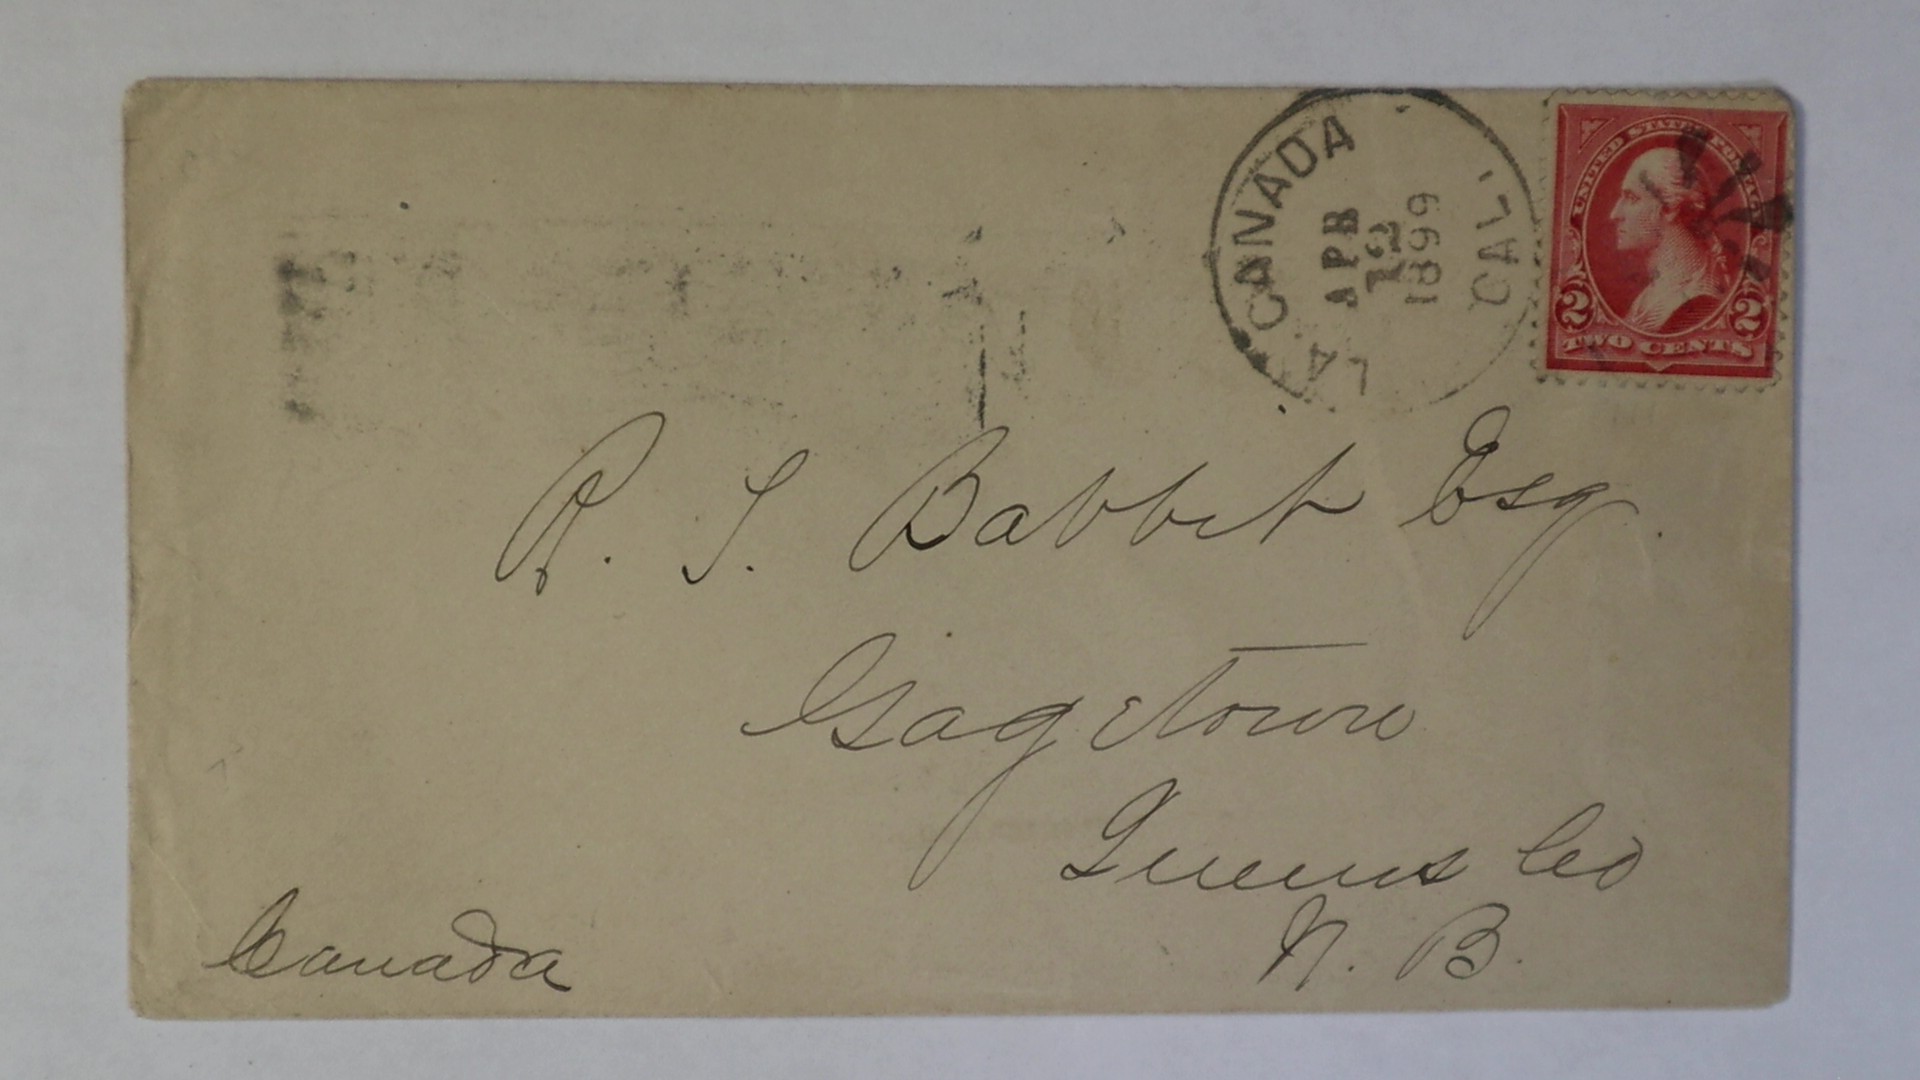 LA CANADA CAL'
APR
12
1899
UNITED STATES POSTAGE
2 2
TWO CENTS
R. S. Babbit Esq.
Gagetown
Queens Co
N. B.
Canada